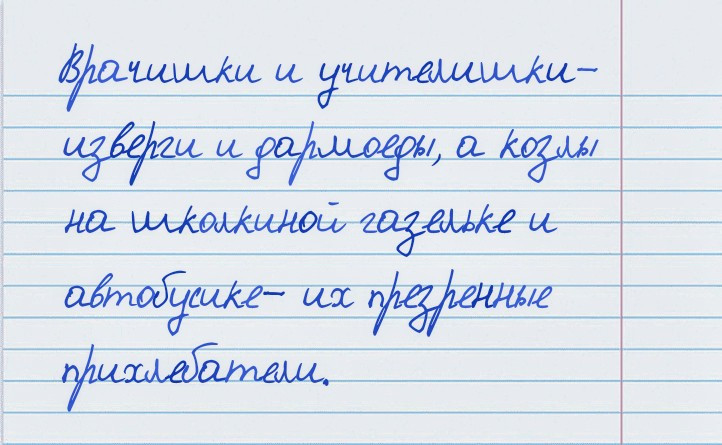 Врачишки и учителишки-
изверги и дармоеды, а козлы
на школкиной газельке и
автобусике- их презренные
прихлебатели.